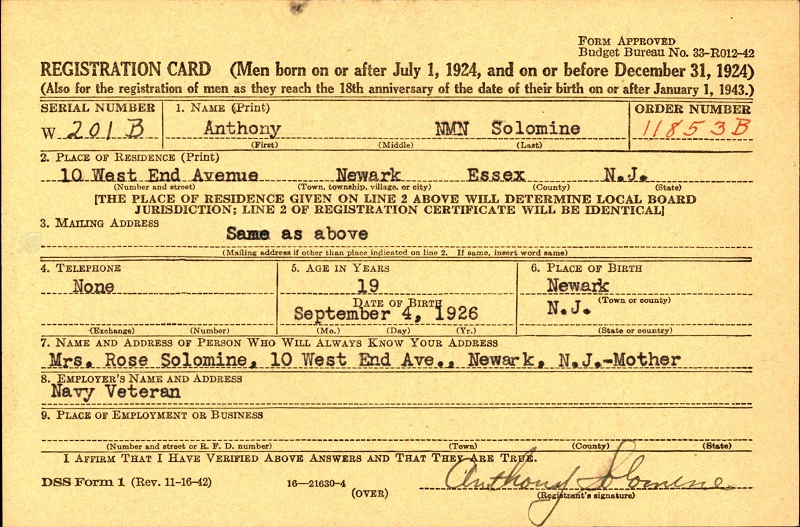 FORM APPROVED
Budget Bureau No. 33-R012-42
REGISTRATION CARD (Men born on or after July 1, 1924, and on or before December 31, 1924)
(Also for the registration of men as they reach the 18th anniversary of the date of their birth on or after January 1, 1943.)
SERIAL NUMBER 1. NAME (Print) ORDER NUMBER
W 201 B Anthony NMN Solomine 11853B
(First) (Middle) (Last)
2. PLACE OF RESIDENCE (Print)
10 West End Avenue Newark Essex N.J.
(Number and street) (Town, township, village, or city) (County) (State)
[THE PLACE OF RESIDENCE GIVEN ON LINE 2 ABOVE WILL DETERMINE LOCAL BOARD
JURISDICTION; LINE 2 OF REGISTRATION CERTIFICATE WILL BE IDENTICAL]
3. MAILING ADDRESS
Same as above
(Mailing address if other than place indicated on line 2. If same, insert word same)
4. TELEPHONE 5. AGE IN YEARS 6. PLACE OF BIRTH
None 19 Newark
DATE OF BIRTH (Town or county)
September 4, 1926 N.J.
(Exchange) (Number) (Mo.) (Day) (Yr.) (State or country)
7. NAME AND ADDRESS OF PERSON WHO WILL ALWAYS KNOW YOUR ADDRESS
Mrs. Rose Solomine, 10 West End Ave., Newark, N.J.-Mother
8. EMPLOYER'S NAME AND ADDRESS
Navy Veteran
9. PLACE OF EMPLOYMENT OR BUSINESS
(Number and street or R. F. D. number) (Town) (County) (State)
I AFFIRM THAT I HAVE VERIFIED ABOVE ANSWERS AND THAT THEY ARE TRUE.
DSS Form 1 (Rev. 11-16-42) 16—21630-4 Anthony Solomine
(OVER) (Registrant's signature)